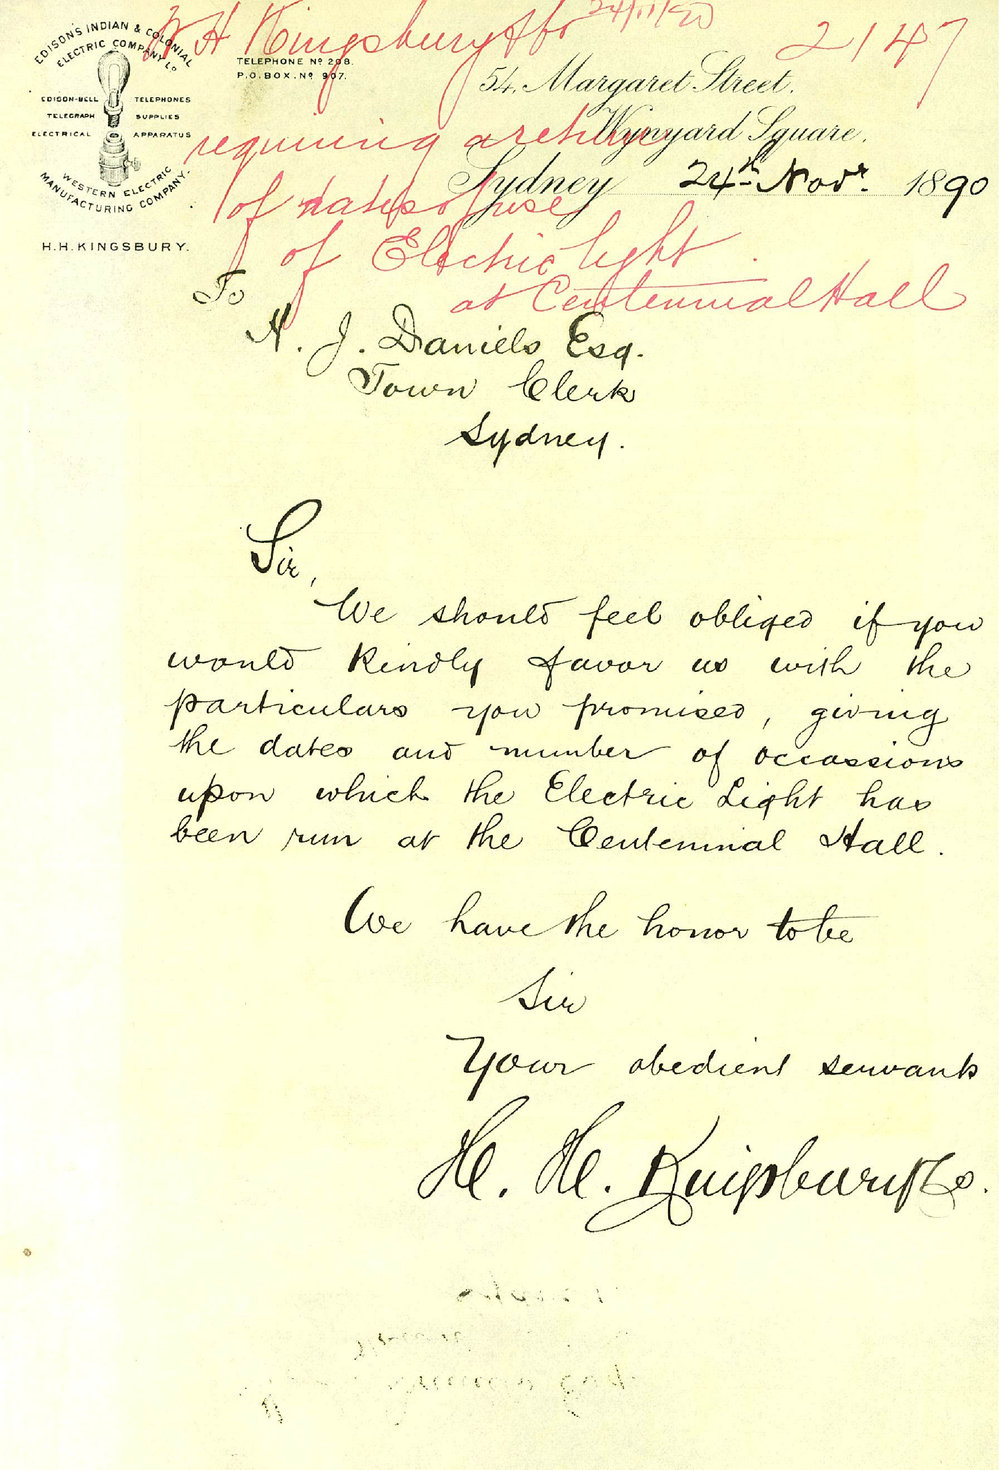 W H Kingsbury & Co 24/11/90
2147
requiring
of dates of use
of Electric light
at Centennial Hall
EDISON'S INDIAN & COLONIAL
ELECTRIC COMPANY Ld
EDISON-BELL TELEPHONES
TELEGRAPH SUPPLIES
ELECTRICAL APPARATUS
WESTERN ELECTRIC
MANUFACTURING COMPANY.
H.H. KINGSBURY.
TELEPHONE No 208.
P.O. BOX. No 907.
54, Margaret Street,
Wynyard Square,
Sydney 24th Novr. 1890
To
H. J. Daniels Esq.
Town Clerk
Sydney.
Sir,
We should feel obliged if you
would kindly favor us with the
particulars you promised, giving
the dates and number of occassions
upon which the Electric Light has
been run at the Centennial Hall.
We have the honor to be
Sir
Your obedient servants
H. H. Kingsbury & Co.